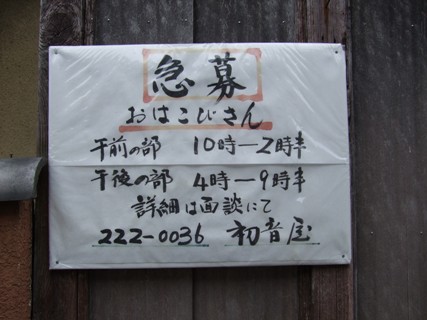 急募
おはこびさん
午前の部 10時―2時半
午後の部 4時―9時半
詳細は面談にて
222-0036 初音屋